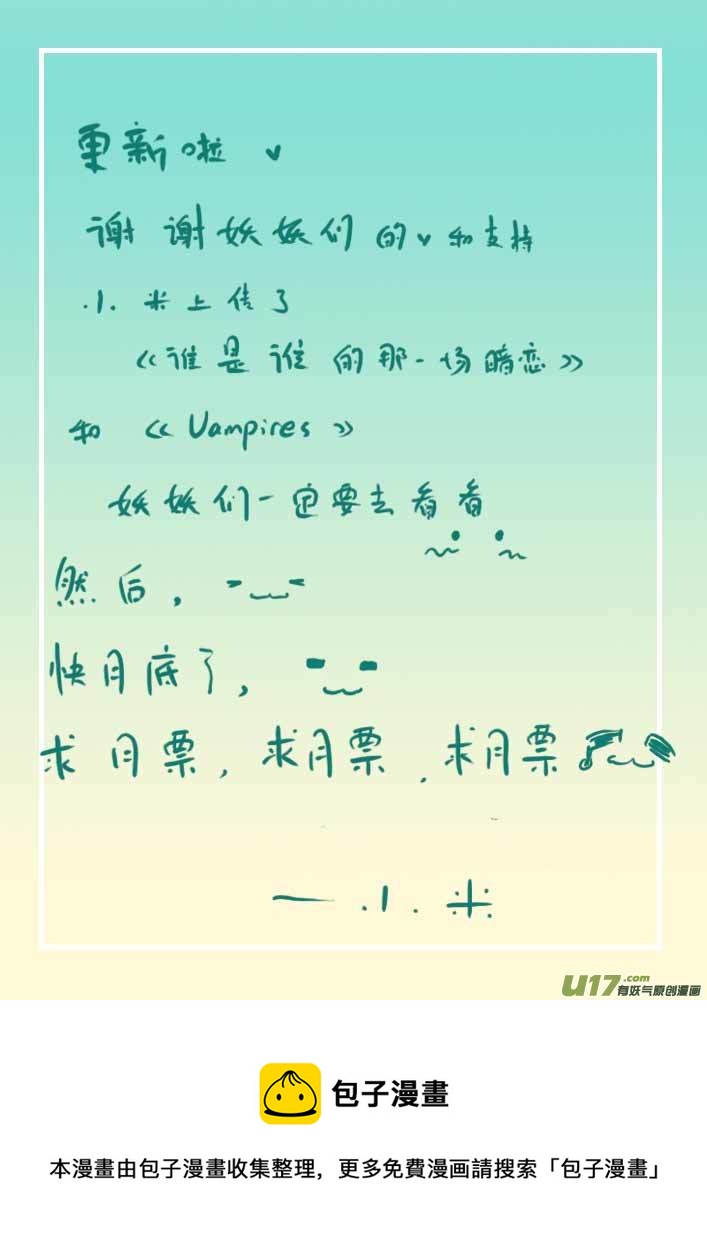 更新啦
谢谢妖妖们的和支持
小米上传了
《谁是谁的那一场暗恋》
和《Vampires》
妖妖们一定要去看看
然后，
快月底了，
求月票，求月票，求月票
——小米
U17.com
有妖气原创漫画
包子漫畫
本漫畫由包子漫畫收集整理，更多免費漫画請搜索「包子漫畫」